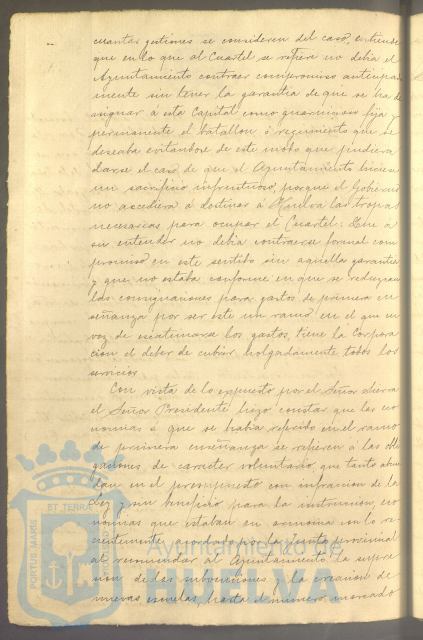 cuantas gestiones se consideren del caso, entiende
que en lo que al Cuartel se refiere no debia el
Ayuntamiento contraer compromiso anticipada
mente sin tener la garantia de que se ha de
asignar á esta Capital como guarnicion fija y
permanente el batallon ó regimiento que se
deseaba evitandose de este modo que pudiera
darse el caso de que el Ayuntamiento hiciera
un sacrificio infructuoso, porque el Gobierno
no accediera á destinar á Huelva las tropas
necesarias para ocupar el Cuartel: Que á
su entender no debia contraerse formal com
promiso en este sentido sin aquella garantia
y que no estaba conforme en que se redujeran
las consignaciones para gastos de primera en
señanza por ser este un ramo en el que en
vez de escatimarse los gastos, tiene la Corpora
cion el deber de cubrir holgadamente todos los
servicios.
Con vista de lo expuesto por el Señor
el Señor Presidente hizo constar que las eco
nomias á que se habia referido en el ramo
de primera enseñanza se refieren á las obli
gaciones de caracter voluntario, que tanto abun
dan en el presupuesto con infraccion de la
Ley y sin beneficio para la instruccion, eco
nomias que estaban en armonia con lo re
cientemente acordado por la Junta provincial
al recomendar al Ayuntamiento la supre
sion de las subvenciones y la creacion de
nuevas escuelas, hasta el número marcado
PORTUS MARIS
ET TERRAE
Ayuntamiento de
HUELVA